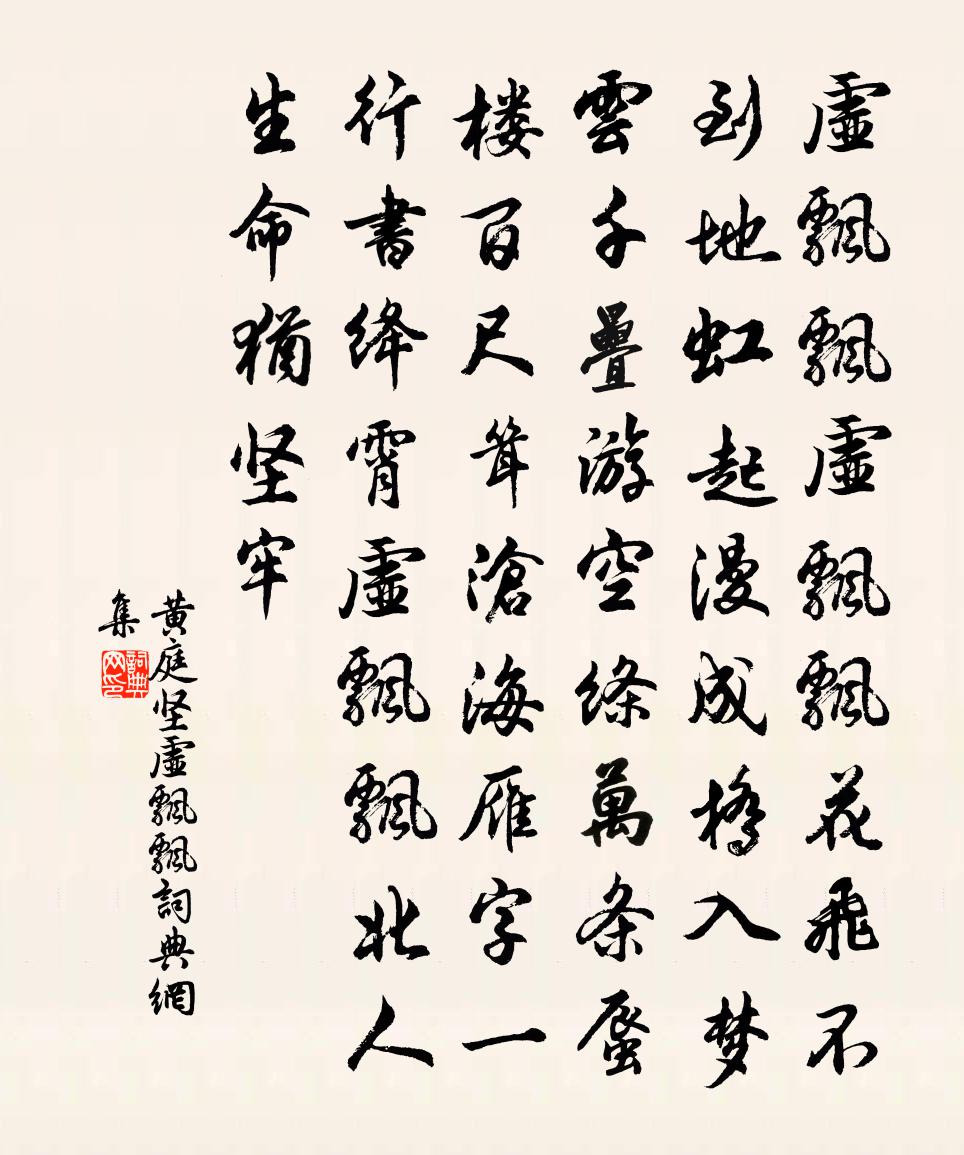 虛飄飄虛飄飄花飛不
到地虹起漫成橋入梦
雲千疊游空絛萬条蜃
楼百尺耸滄海雁字一
行書绛霄虛飄飄北人
生命猶坚牢
黄庭坚虛飄飄詞典網
集
詞典网印